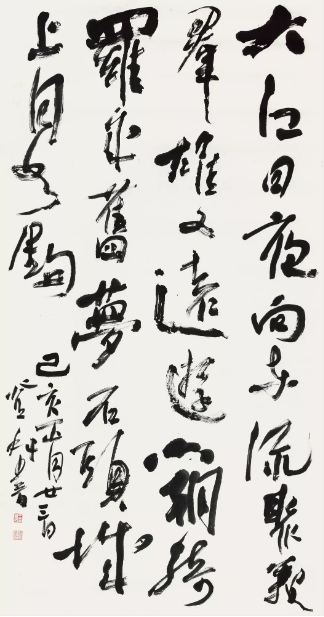 大江日夜向東流聚義
羣雄又遠遊六朝綺
羅成舊夢石頭城
上月如鉤
己亥正月廿三日